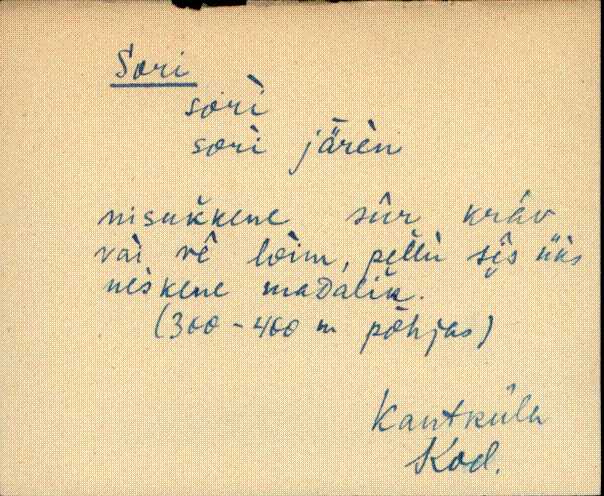 Sori
sorì
sorì järèn
nisuk̆kene sûr krâv
vaì vê loìm, pel̆lù sê̮s ük̀s
nes̀kene maᴅalik̆.
(300-400 m põhjas)
Kantküla
Kod.